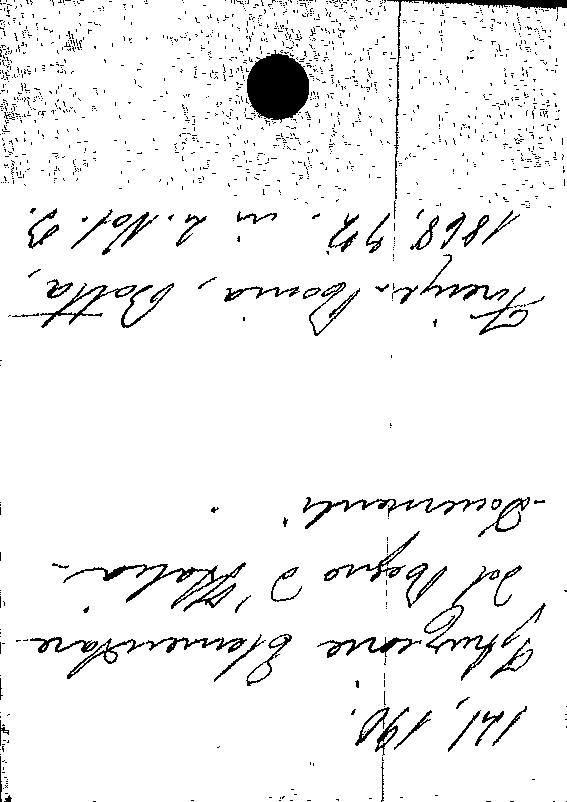 121, 190.
Istruzione Elementare
del Regno d'Italia -
Documenti.
Firenze-Roma, Botta,
1868, 72. in 2. Vol. 8.